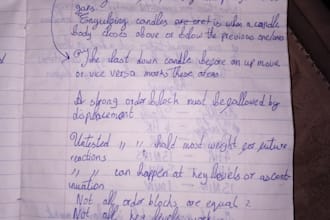 gaps.
Engulfing candles are is when a candle
body closes above or below the previous
The last down candle before an up move
or vice versa marks these areas
A strong order block must be followed by
displacement
Untested " " hold most weight for future
reactions
" " can happen at key levels or as cont-
inuation
Not all order blocks are equal
Not all